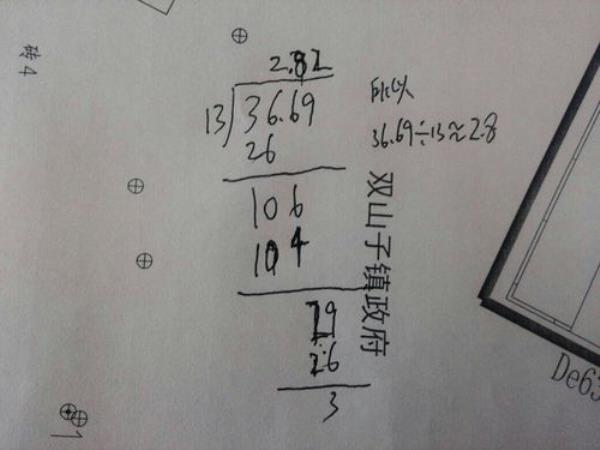 2.82
13 36.69
26
106
104
29
26
3
所以
36.69÷13≈2.8
双山子镇政府
砖4
De63
1